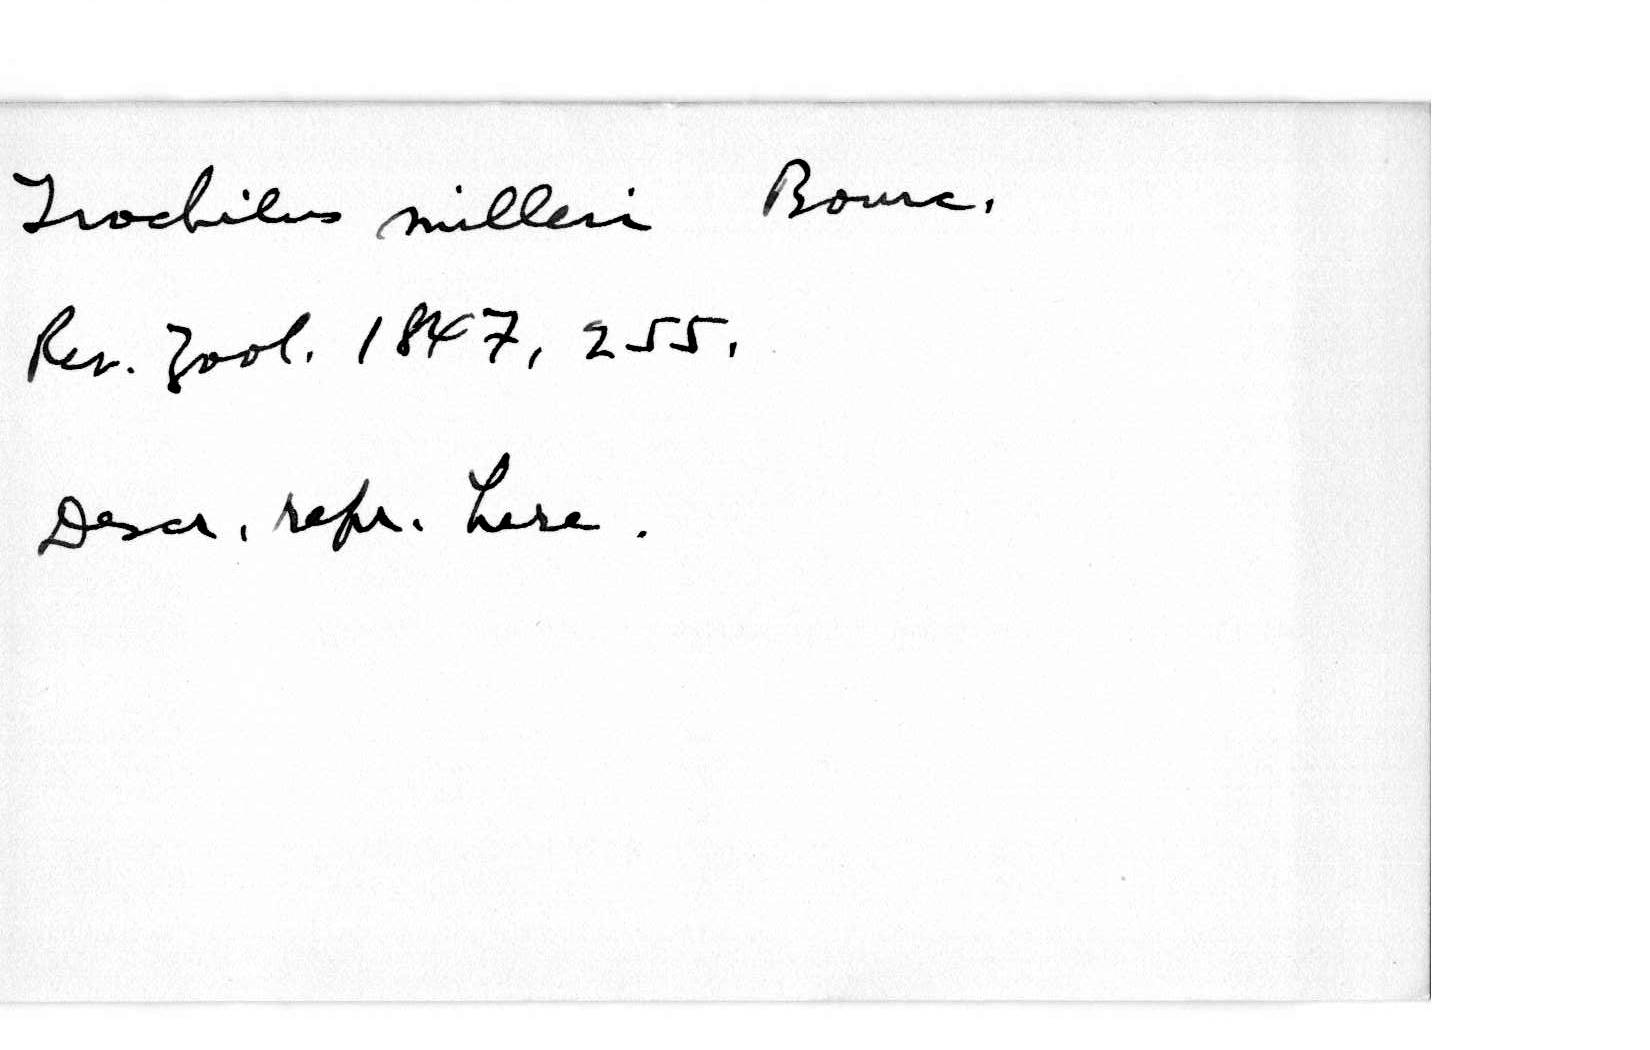 Trochilus milleri Bourc.
Rev. Zool. 1847, 255.
Descr. repr. here.